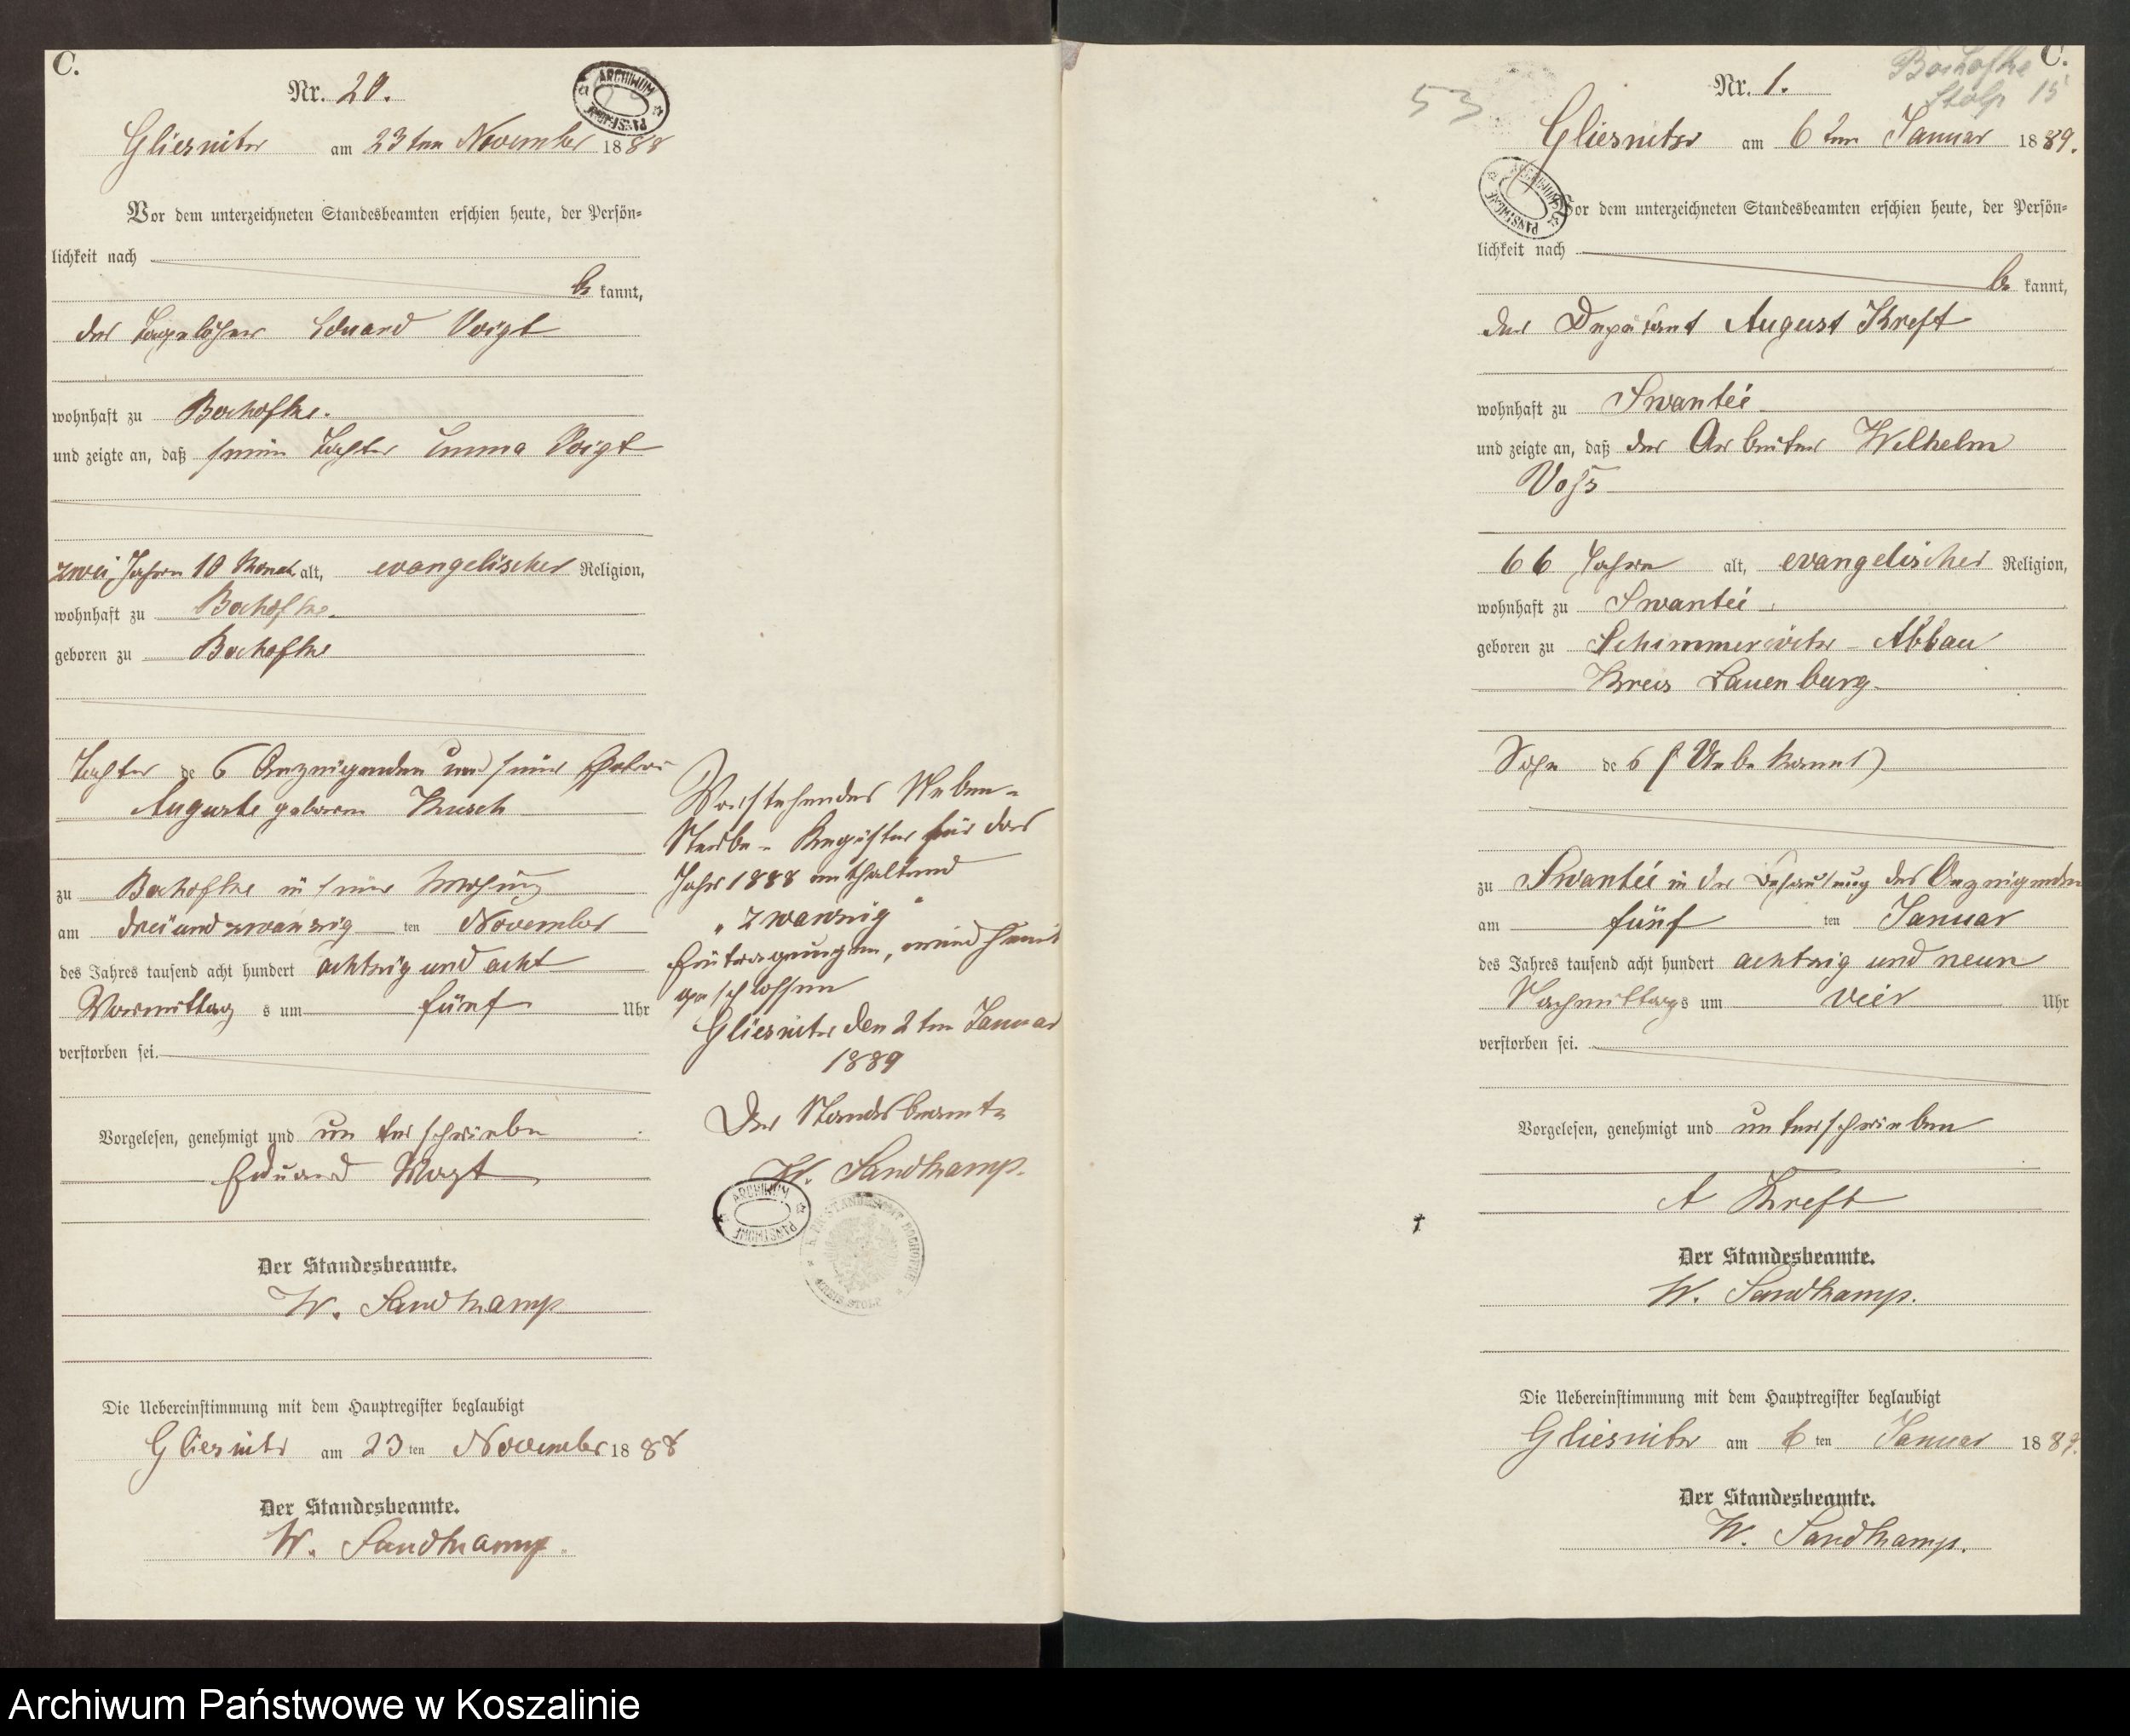 C.
Nr. 20.
ARCHIWUM PAŃSTWOWE
Gliesnitz am 23ten November 1888
Vor dem unterzeichneten Standesbeamten erschien heute, der Persön=
lichkeit nach
be kannt,
der Tagelöhner Eduard Voigt
wohnhaft zu Bochofke.
und zeigte an, daß seine Tochter Emma Voigt
zwei Jahre 10 Monat alt, evangelischer Religion,
wohnhaft zu Bochofke
geboren zu Bochofke
Tochter des Anzeigenden und seiner Ehefrau
Auguste geborene Kusch
zu Bochofke in seiner Wohnung
am dreiundzwanzig ten November
des Jahres tausend acht hundert achtzig und acht
Vormittag s um fünf Uhr
verstorben sei.
Vorgelesen, genehmigt und unterschrieben
Eduard Voigt
Der Standesbeamte.
W. Sandkamp
Die Uebereinstimmung mit dem Hauptregister beglaubigt
Gliesnitz am 23 ten November 1888
Der Standesbeamte.
W. Sandkamp.
Vorstehendes Neben-
Sterbe-Register für das
Jahr 1888 enthaltend
„zwanzig"
Eintragungen, wird hiermit
geschlossen
Gliesnitz den 2ten Januar
1889
Der Standesbeamte
W. Sandkamp.
ARCHIWUM PAŃSTWOWE
K. PR. STANDESAMT BOCHOFKE
KREIS STOLP
C.
Bochofke
Stolp 15
53
Nr. 1.
Gliesnitz am 6ten Januar 1889.
ARCHIWUM PAŃSTWOWE
Vor dem unterzeichneten Standesbeamten erschien heute, der Persön=
lichkeit nach
be kannt,
der Deputant August Kreft
wohnhaft zu Swantee
und zeigte an, daß der Arbeiter Wilhelm
Voss
66 Jahre alt, evangelischer Religion,
wohnhaft zu Swantee
geboren zu Schimmerwitz-Abbau
Kreis Lauenburg
Sohn des (Unbekannt)
zu Swantee in der Behausung des Anzeigenden
am fünf ten Januar
des Jahres tausend acht hundert achtzig und neun
Nachmittags um vier Uhr
verstorben sei.
Vorgelesen, genehmigt und unterschrieben
A Kreft
Der Standesbeamte.
W. Sandkamp.
Die Uebereinstimmung mit dem Hauptregister beglaubigt
Gliesnitz am 6 ten Januar 1889.
Der Standesbeamte.
W. Sandkamp.
Archiwum Państwowe w Koszalinie